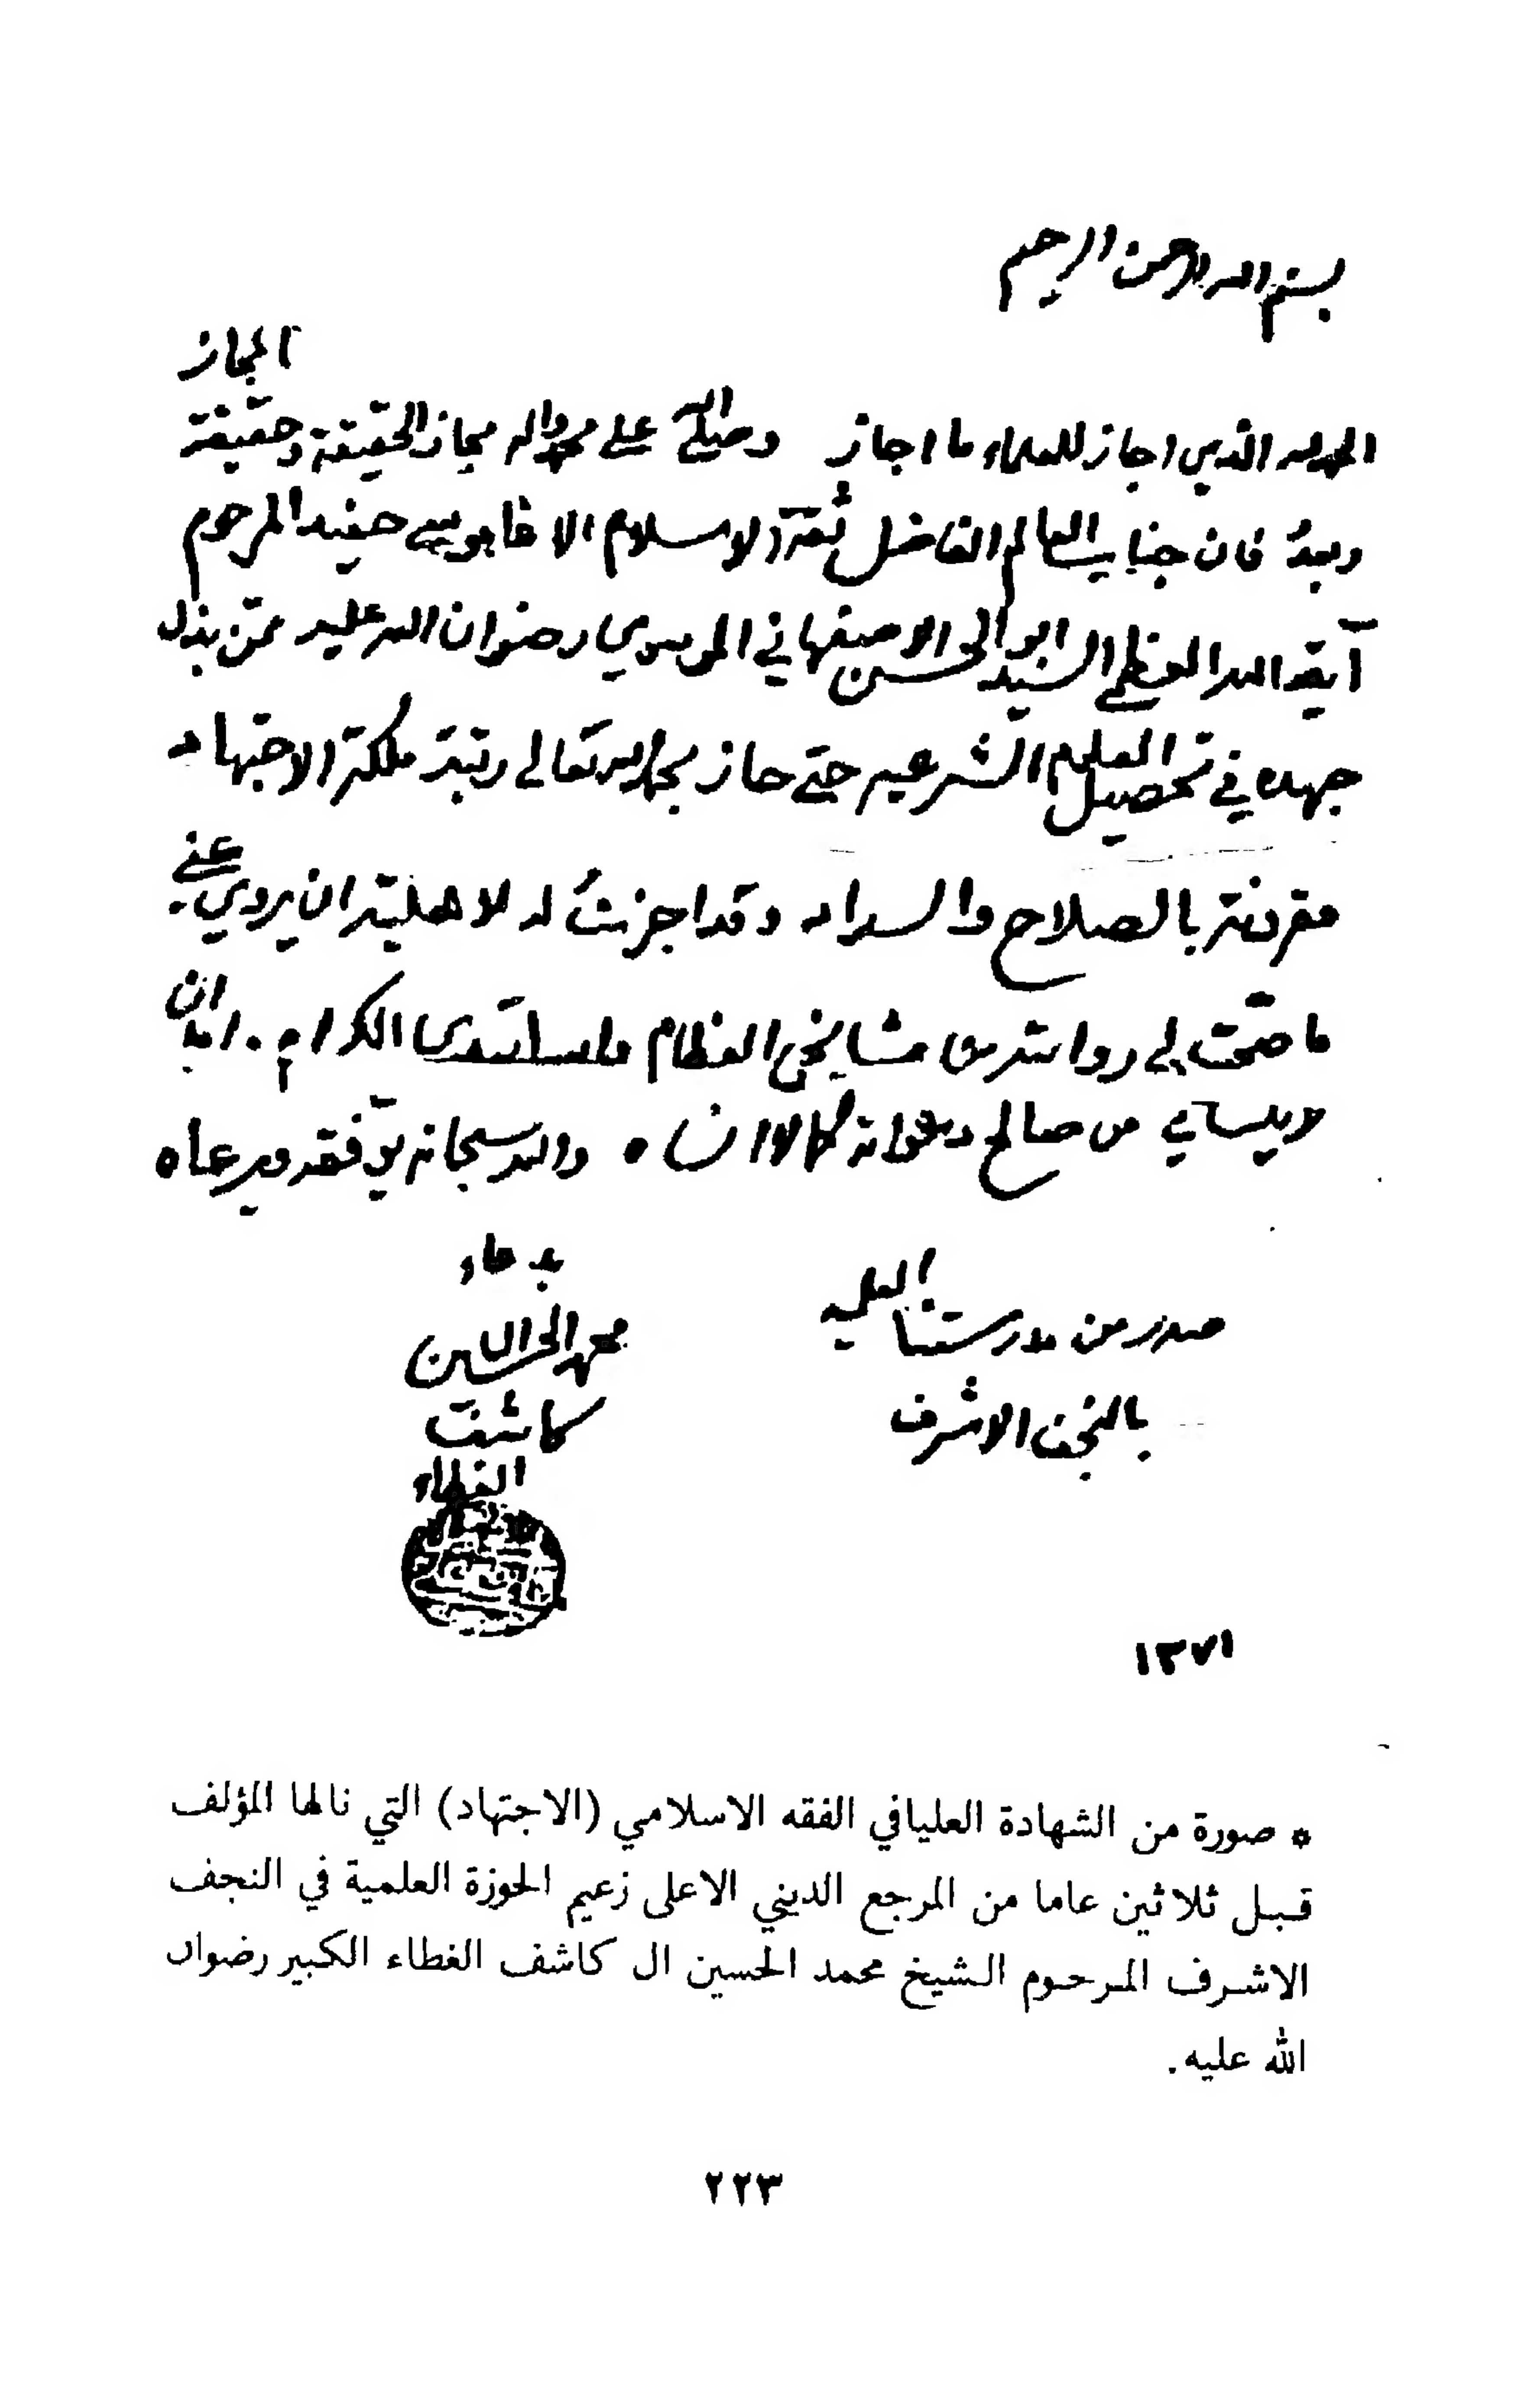 بسم الله الرحمن الرحيم
الحمد لله الذي اجاز للعلماء ما اجاز وصلى الله على محمد واله مجاز الحقيقة وحقيقة المجاز
وبعدُ فان جناب العالم الفاضل ثقة الاسلام الاغا موسى حفيد المرحوم
آية الله العظمى السيد ابو الحسن الاصفهاني الموسوي رضوان الله عليه ممّن بذل
جهده في تحصيل العلوم الشرعيه حتى حاز بحمد الله تعالى رتبة ملكة الاجتهاد
مقرونة بالصلاح والسداد وقد اجزتُ له لاهليته ان يروي عني
ما صحت لي روايته من مشايخي العظام واساتذتي الكرام .
لا ينساني من صالح دعواته كما لا ان والله سبحانه يوّفقه ويرعاه
صدر من مدرستنا العلميه
بالنجف الاشرف
بدعاء
محمد الحسين
كاشف
الغطاء
١٣٧١
* صورة من الشهادة العليافي الفقه الاسلامي (الاجتهاد) التي نالها المؤلف
قبل ثلاثين عاما من المرجع الديني الاعلى زعيم الحوزة العلمية في النجف
الاشرف المرحوم الشيخ محمد الحسين ال كاشف الغطاء الكبير رضوان
الله عليه .
٢٢٣